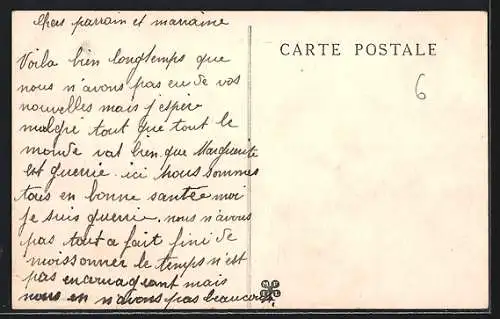 Chers parrain et marraine
Voila bien longtemps que
nous n'avons pas eu de vos
nouvelles mais j'espère
malgré tout que tout le
monde vat bien que Marguerite
est guerrie. ici Nous sommes
tous en bonne santée moi
je suis guerrie. nous n'avons
pas tout a fait fini de
moissonner le temps n'est
pas encourageant mais
nous en n'avons pas beaucoup.
CARTE POSTALE
6